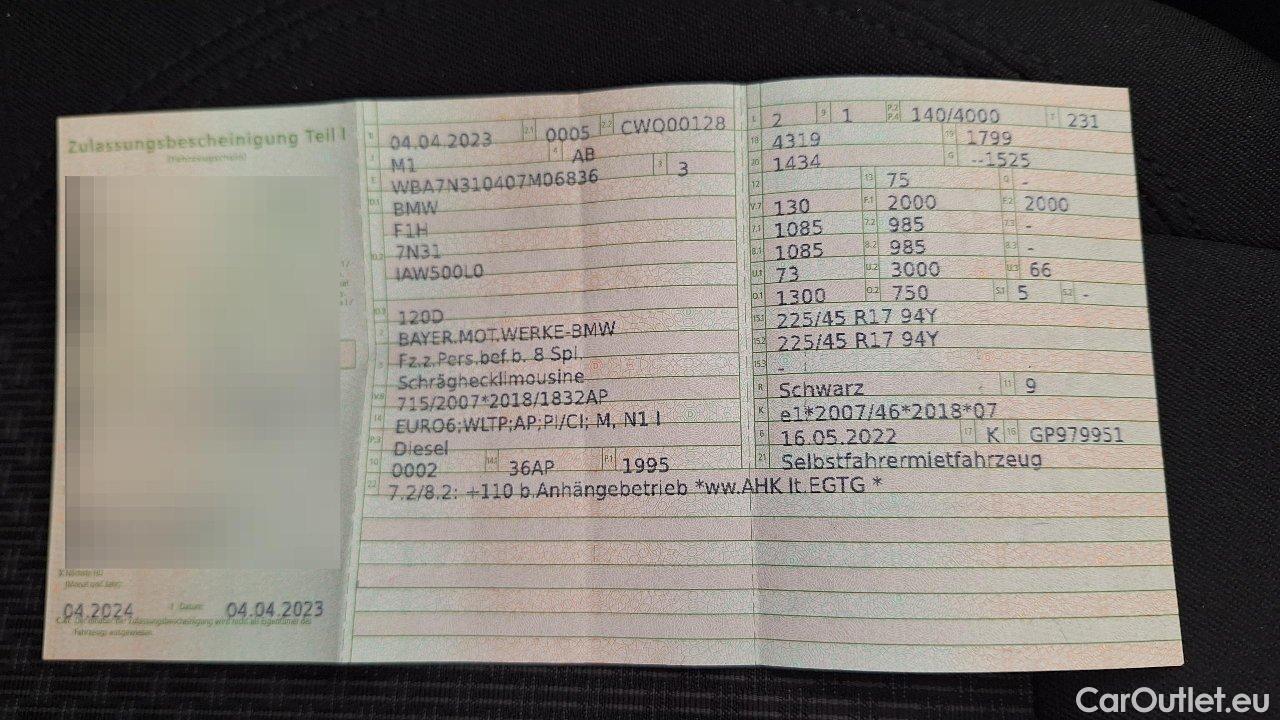 Zulassungsbescheinigung Teil I
(Fahrzeugschein)
X Nächste HU
(Monat und Jahr)
04.2024 I Datum 04.04.2023
C.4c Der Inhaber der Zulassungsbescheinigung wird nicht als Eigentümer des
Fahrzeugs ausgewiesen.
B 04.04.2023 2.1 0005 2.2 CWO00128
J M1 4 AB
E WBA7N310407M06836 3 3
D.1 BMW
F1H
D.2 7N31
IAW500L0
D.3 120D
2 BAYER.MOT.WERKE-BMW
5 Fz.z.Pers.bef.b. 8 Spl.
Schräghecklimousine
V.9 715/2007*2018/1832AP
14 EURO6;WLTP;AP;PI/CI; M, N1 I
P.3 Diesel
10 0002 14.1 36AP P.1 1995
22 7.2/8.2: +110 b.Anhängebetrieb *ww.AHK lt.EGTG *
L 2 9 1 P.2 P.4 140/4000 T 231
18 4319 19 1799
20 1434 G --1525
12 13 75 Q -
V.7 130 F.1 2000 F.2 2000
7.1 1085 7.2 985 7.3 -
8.1 1085 8.2 985 8.3 -
U.1 73 U.2 3000 U.3 66
O.1 1300 O.2 750 S.1 5 S.2 -
15.1 225/45 R17 94Y
15.2 225/45 R17 94Y
15.3 -
R Schwarz 11 9
K e1*2007/46*2018*07
6 16.05.2022 17 K 16 GP979951
21 Selbstfahrermietfahrzeug
CarOutlet.eu